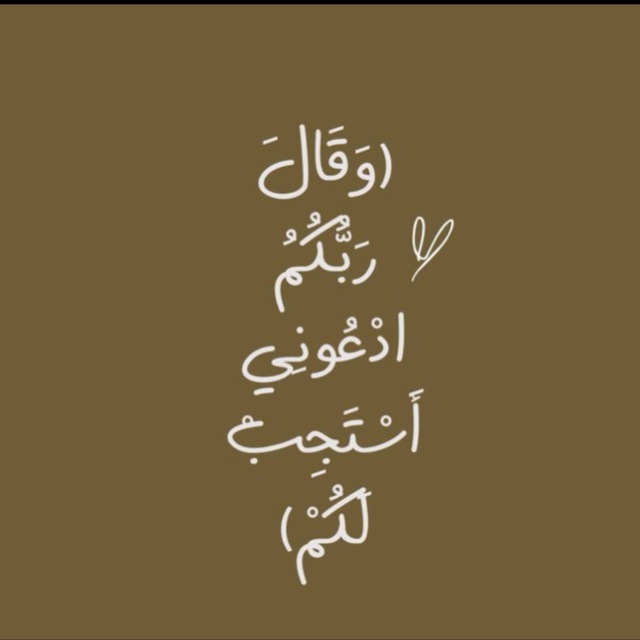 (وَقَالَ
رَبُّكُمُ
ادْعُونِي
أَسْتَجِبْ
لَكُمْ)